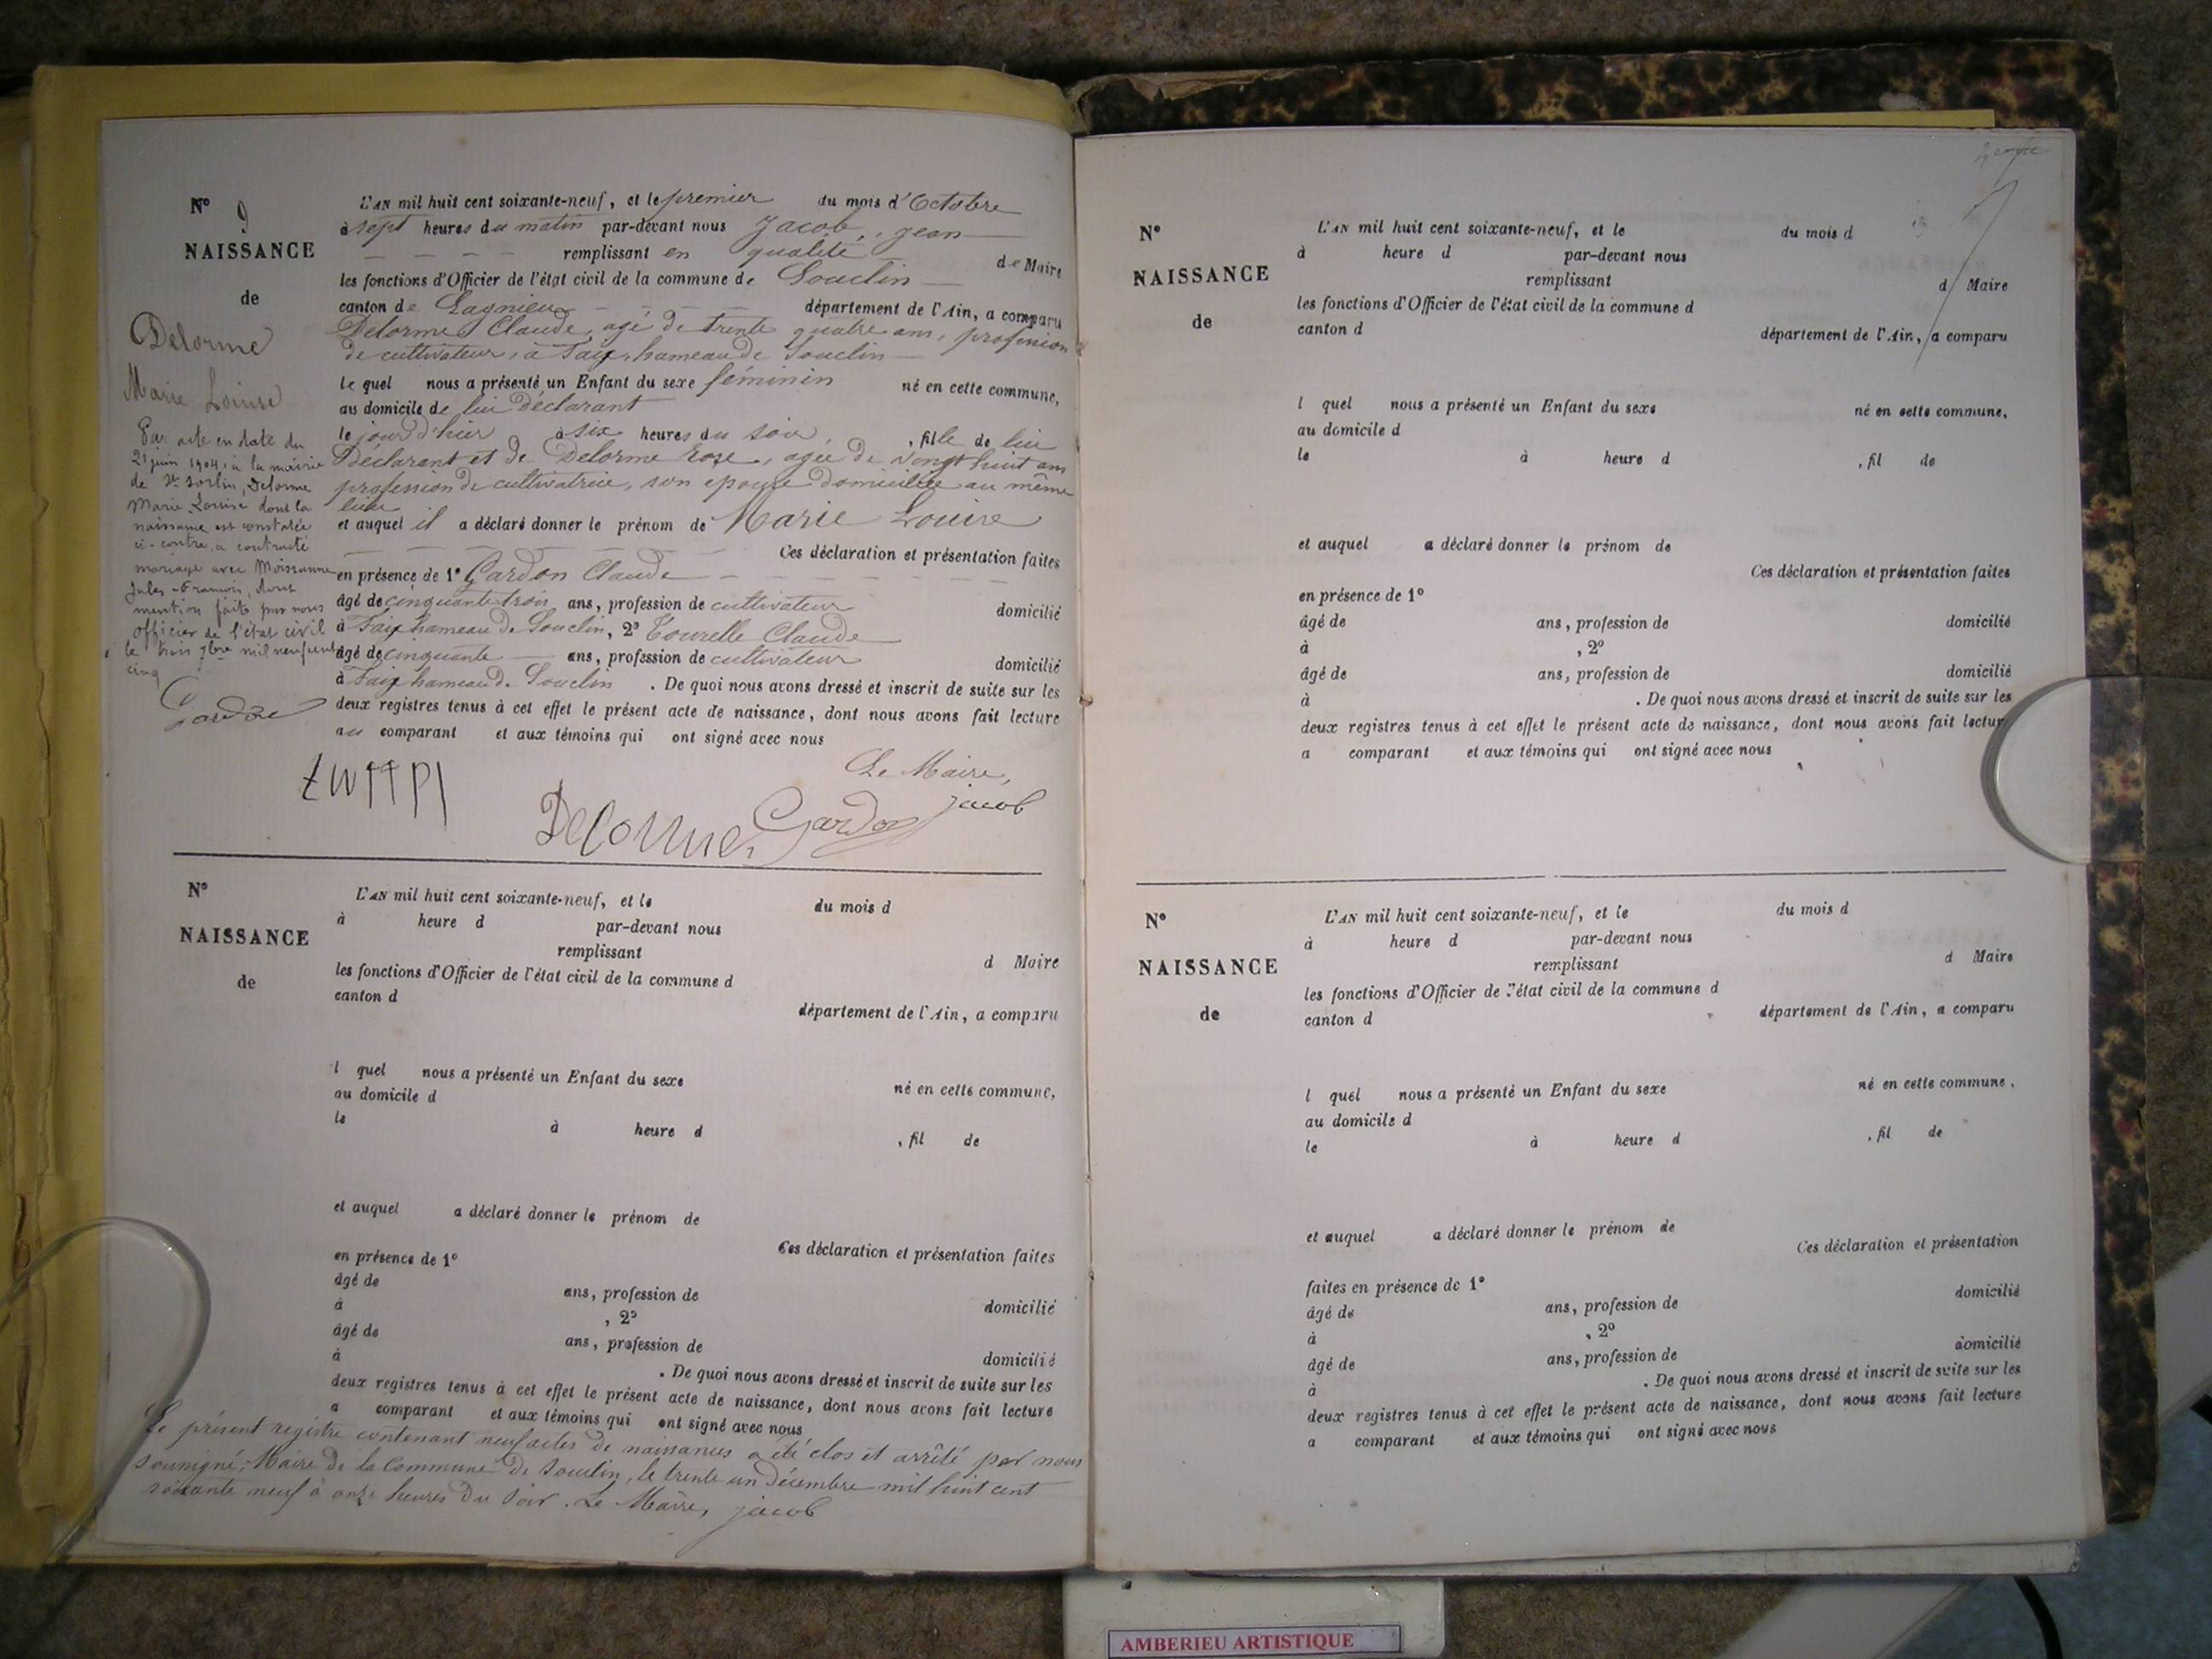 Nº 9
NAISSANCE
de
Delorme
Marie Louise
Par acte en date du
21 juin 1904, à la mairie
de St Sorlin, Delorme
Marie Louise dont la
naissance est constatée
ci-contre, a contracté
mariage avec Moissonnier
Jules-François, dont
mention faite par nous
officier de l'état civil
le trois 7bre mil neuf cent
cinq
Gardon
L'AN mil huit cent soixante-neuf, et le premier du mois d'Octobre
à sept heures du matin par-devant nous Jacob, Jean
remplissant en qualité de Maire
les fonctions d'Officier de l'état civil de la commune de Souclin
canton de Lagnieu département de l'Ain, a comparu
Delorme Claude, agé de trente quatre ans, profession
de cultivateur, à Faix, hameau de Souclin
le quel nous a présenté un Enfant du sexe féminin né en cette commune,
au domicile de lui déclarant
le jour d'hier à six heures du soir, fille de lui
Déclarant et de Delorme Rose, agée de vingt huit ans
profession de cultivatrice, son epouse domiciliée au même
lieu
et auquel il a déclaré donner le prénom de Marie Louise
Ces déclaration et présentation faites
en présence de 1º Gardon Claude
âgé de cinquante trois ans, profession de cultivateur domicilié
à Faix hameau de Souclin, 2º Tourelle Claude
âgé de cinquante ans, profession de cultivateur domicilié
à Faix hameau de Souclin. De quoi nous avons dressé et inscrit de suite sur les
deux registres tenus à cet effet le présent acte de naissance, dont nous avons fait lecture
au comparant et aux témoins qui ont signé avec nous
Le Maire,
Delorme Gardon jacob
Nº
NAISSANCE
de
L'AN mil huit cent soixante-neuf, et le du mois d
à heure d par-devant nous
remplissant d Maire
les fonctions d'Officier de l'état civil de la commune d
canton d département de l'Ain, a comparu
l quel nous a présenté un Enfant du sexe né en cette commune,
au domicile d
le à heure d , fil de
et auquel a déclaré donner le prénom de
Ces déclaration et présentation faites
en présence de 1º
âgé de ans, profession de domicilié
à , 2º
âgé de ans, profession de domicilié
à . De quoi nous avons dressé et inscrit de suite sur les
deux registres tenus à cet effet le présent acte de naissance, dont nous avons fait lecture
a comparant et aux témoins qui ont signé avec nous
Le présent registre contenant neuf actes de naissances a été clos et arrêté par nous
soussigné, Maire de la Commune de Souclin, le trente un décembre mil huit cent
soixante neuf à onze heures du soir. Le Maire, jacob
Nº
NAISSANCE
de
L'AN mil huit cent soixante-neuf, et le du mois d
à heure d par-devant nous
remplissant d Maire
les fonctions d'Officier de l'état civil de la commune d
canton d département de l'Ain, a comparu
l quel nous a présenté un Enfant du sexe né en cette commune,
au domicile d
le à heure d , fil de
et auquel a déclaré donner le prénom de
Ces déclaration et présentation faites
en présence de 1º
âgé de ans, profession de domicilié
à , 2º
âgé de ans, profession de domicilié
à . De quoi nous avons dressé et inscrit de suite sur les
deux registres tenus à cet effet le présent acte de naissance, dont nous avons fait lecture
a comparant et aux témoins qui ont signé avec nous
Nº
NAISSANCE
de
L'AN mil huit cent soixante-neuf, et le du mois d
à heure d par-devant nous
remplissant d Maire
les fonctions d'Officier de l'état civil de la commune d
canton d département de l'Ain, a comparu
l quel nous a présenté un Enfant du sexe né en cette commune,
au domicile d
le à heure d , fil de
et auquel a déclaré donner le prénom de
Ces déclaration et présentation
faites en présence de 1º
âgé de ans, profession de domicilié
à , 2º
âgé de ans, profession de domicilié
à . De quoi nous avons dressé et inscrit de suite sur les
deux registres tenus à cet effet le présent acte de naissance, dont nous avons fait lecture
a comparant et aux témoins qui ont signé avec nous
AMBERIEU ARTISTIQUE